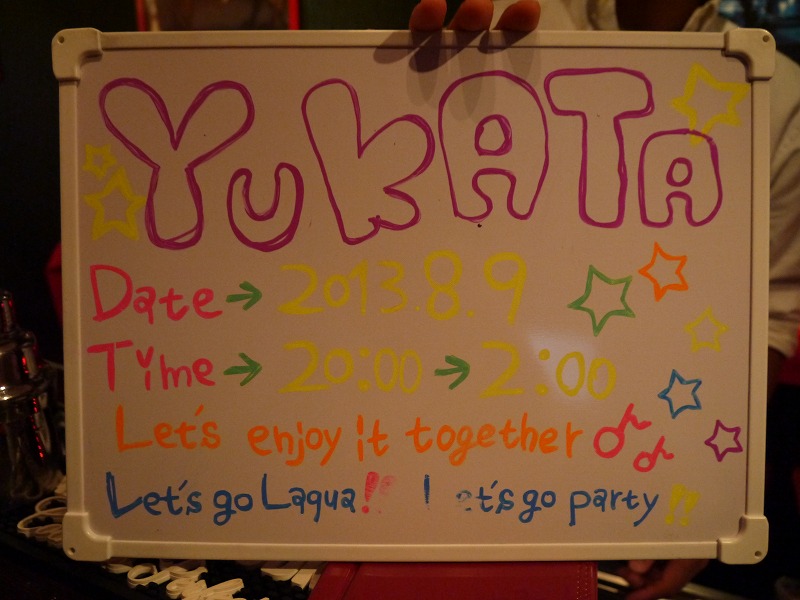 YUKATA
Date → 2013.8.9
Time → 20:00 → 2:00
Let's enjoy it together
Let's go Laqua!! Let's go party!!